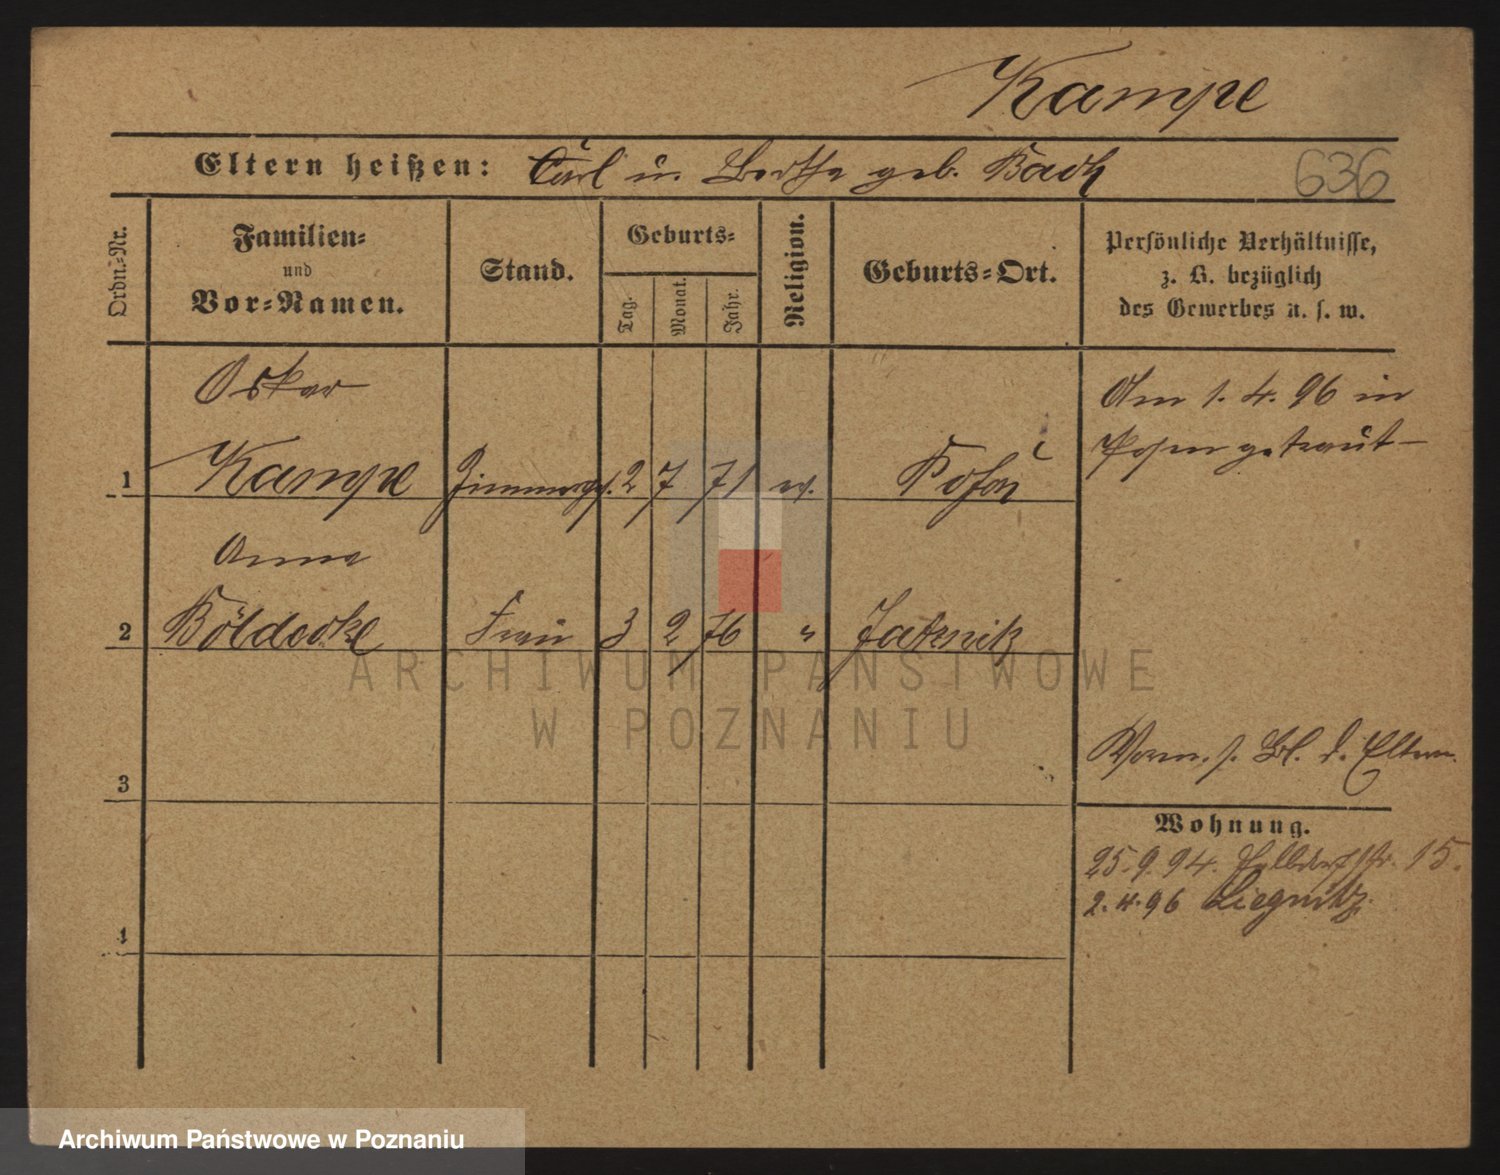 Kampe
Eltern heißen: Carl u. Bertha geb. Bach
636
Ordn.-Nr.
Familien-
und
Vor-Namen.
Stand.
Geburts-
Tag.
Monat.
Jahr.
Religion.
Geburts-Ort.
Persönliche Verhältnisse,
z. B. bezüglich
des Gewerbes u. s. w.
Oskar
1 Kampe Zimmerges. 2 7 71 ev. Posen
Am 1. 4. 96 in
Posen getraut
Anna
2 Böldecke Frau 3 2 76 " Jatznik
3
Vorm. s. Bl. d. Eltern.
Wohnung.
25. 9. 94. 15.
2. 4. 96 Liegnitz.
4
ARCHIWUM PAŃSTWOWE
W POZNANIU
Archiwum Państwowe w Poznaniu